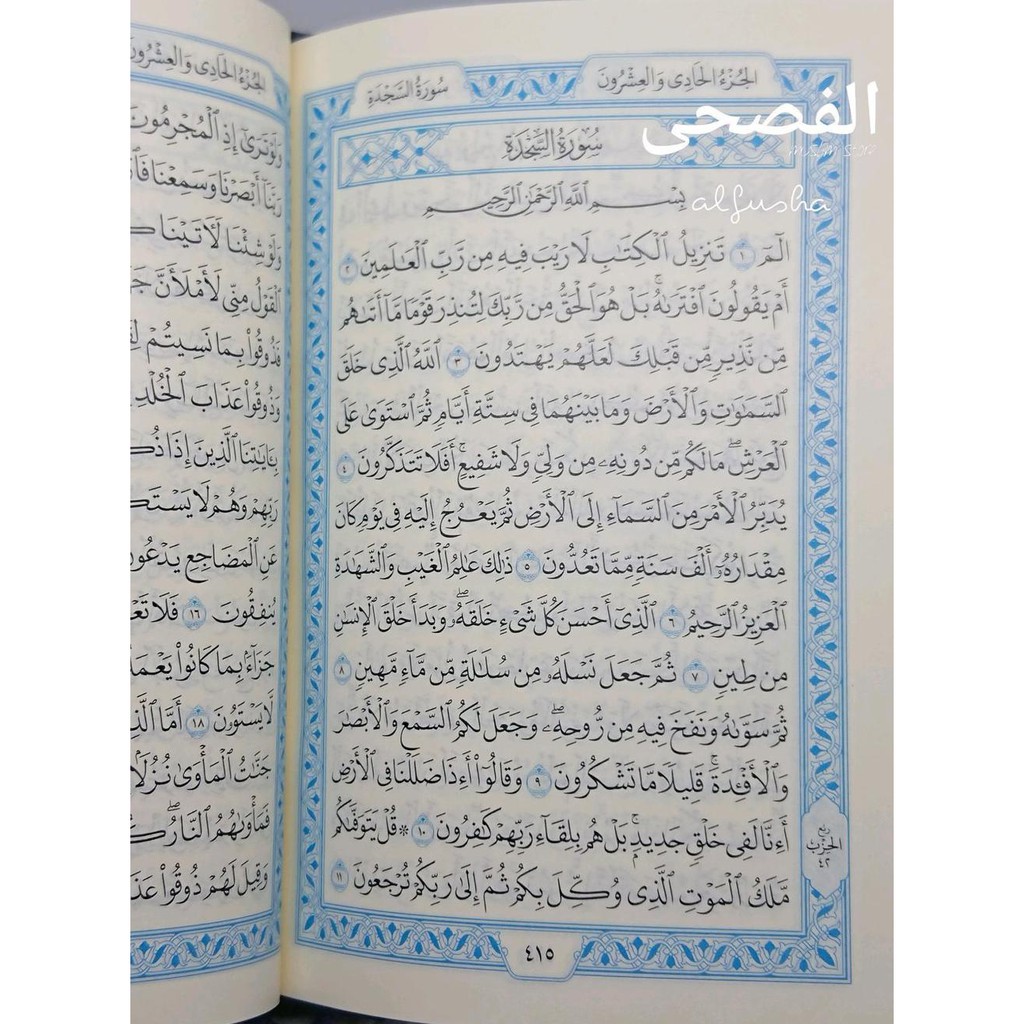 الجُزْءُ الحَادِي وَالعِشْرُونَ
سُورَةُ السَّجْدَةِ
الفصحى
MUSLIM STORE
alfusha
سُورَةُ السَّجْدَةِ
بِسْمِ ٱللَّهِ ٱلرَّحْمَٰنِ ٱلرَّحِيمِ
الٓمٓ ١ تَنزِيلُ ٱلْكِتَٰبِ لَا رَيْبَ فِيهِ مِن رَّبِّ ٱلْعَٰلَمِينَ ٢
أَمْ يَقُولُونَ ٱفْتَرَىٰهُۚ بَلْ هُوَ ٱلْحَقُّ مِن رَّبِّكَ لِتُنذِرَ قَوْمًا مَّآ أَتَىٰهُم
مِّن نَّذِيرٍ مِّن قَبْلِكَ لَعَلَّهُمْ يَهْتَدُونَ ٣ ٱللَّهُ ٱلَّذِى خَلَقَ
ٱلسَّمَٰوَٰتِ وَٱلْأَرْضَ وَمَا بَيْنَهُمَا فِى سِتَّةِ أَيَّامٍ ثُمَّ ٱسْتَوَىٰ عَلَى
ٱلْعَرْشِۖ مَا لَكُم مِّن دُونِهِۦ مِن وَلِىٍّ وَلَا شَفِيعٍۚ أَفَلَا تَتَذَكَّرُونَ ٤
يُدَبِّرُ ٱلْأَمْرَ مِنَ ٱلسَّمَآءِ إِلَى ٱلْأَرْضِ ثُمَّ يَعْرُجُ إِلَيْهِ فِى يَوْمٍ كَانَ
مِقْدَارُهُۥٓ أَلْفَ سَنَةٍ مِّمَّا تَعُدُّونَ ٥ ذَٰلِكَ عَٰلِمُ ٱلْغَيْبِ وَٱلشَّهَٰدَةِ
ٱلْعَزِيزُ ٱلرَّحِيمُ ٦ ٱلَّذِىٓ أَحْسَنَ كُلَّ شَىْءٍ خَلَقَهُۥۖ وَبَدَأَ خَلْقَ ٱلْإِنسَٰنِ
مِن طِينٍ ٧ ثُمَّ جَعَلَ نَسْلَهُۥ مِن سُلَٰلَةٍ مِّن مَّآءٍ مَّهِينٍ ٨
ثُمَّ سَوَّىٰهُ وَنَفَخَ فِيهِ مِن رُّوحِهِۦۖ وَجَعَلَ لَكُمُ ٱلسَّمْعَ وَٱلْأَبْصَٰرَ
وَٱلْأَفْـِٔدَةَۚ قَلِيلًا مَّا تَشْكُرُونَ ٩ وَقَالُوٓا۟ أَءِذَا ضَلَلْنَا فِى ٱلْأَرْضِ
أَءِنَّا لَفِى خَلْقٍ جَدِيدٍۭۚ بَلْ هُم بِلِقَآءِ رَبِّهِمْ كَٰفِرُونَ ١٠ ۞ قُلْ يَتَوَفَّىٰكُم
مَّلَكُ ٱلْمَوْتِ ٱلَّذِى وُكِّلَ بِكُمْ ثُمَّ إِلَىٰ رَبِّكُمْ تُرْجَعُونَ ١١
ربع
الحزب
٤٢
٤١٥
الجُزْءُ الحَادِي وَالعِشْرُونَ
وَلَوْ تَرَىٰٓ إِذِ ٱلْمُجْرِمُونَ
رَبَّنَآ أَبْصَرْنَا وَسَمِعْنَا
وَلَوْ شِئْنَا لَأٓتَيْنَا
ٱلْقَوْلُ مِنِّى لَأَمْلَأَنَّ
فَذُوقُوا۟ بِمَا نَسِيتُمْ
وَذُوقُوا۟ عَذَابَ ٱلْخُلْدِ
بِـَٔايَٰتِنَا ٱلَّذِينَ إِذَا
رَبِّهِمْ وَهُمْ لَا
عَنِ ٱلْمَضَاجِعِ يَدْعُونَ
يُنفِقُونَ ١٦ فَلَا
جَزَآءًۢ بِمَا كَانُوا۟
لَّا يَسْتَوُۥنَ ١٨ أَمَّا
جَنَّٰتُ ٱلْمَأْوَىٰ نُزُلًۢا
فَمَأْوَىٰهُمُ ٱلنَّارُۖ
وَقِيلَ لَهُمْ ذُوقُوا۟